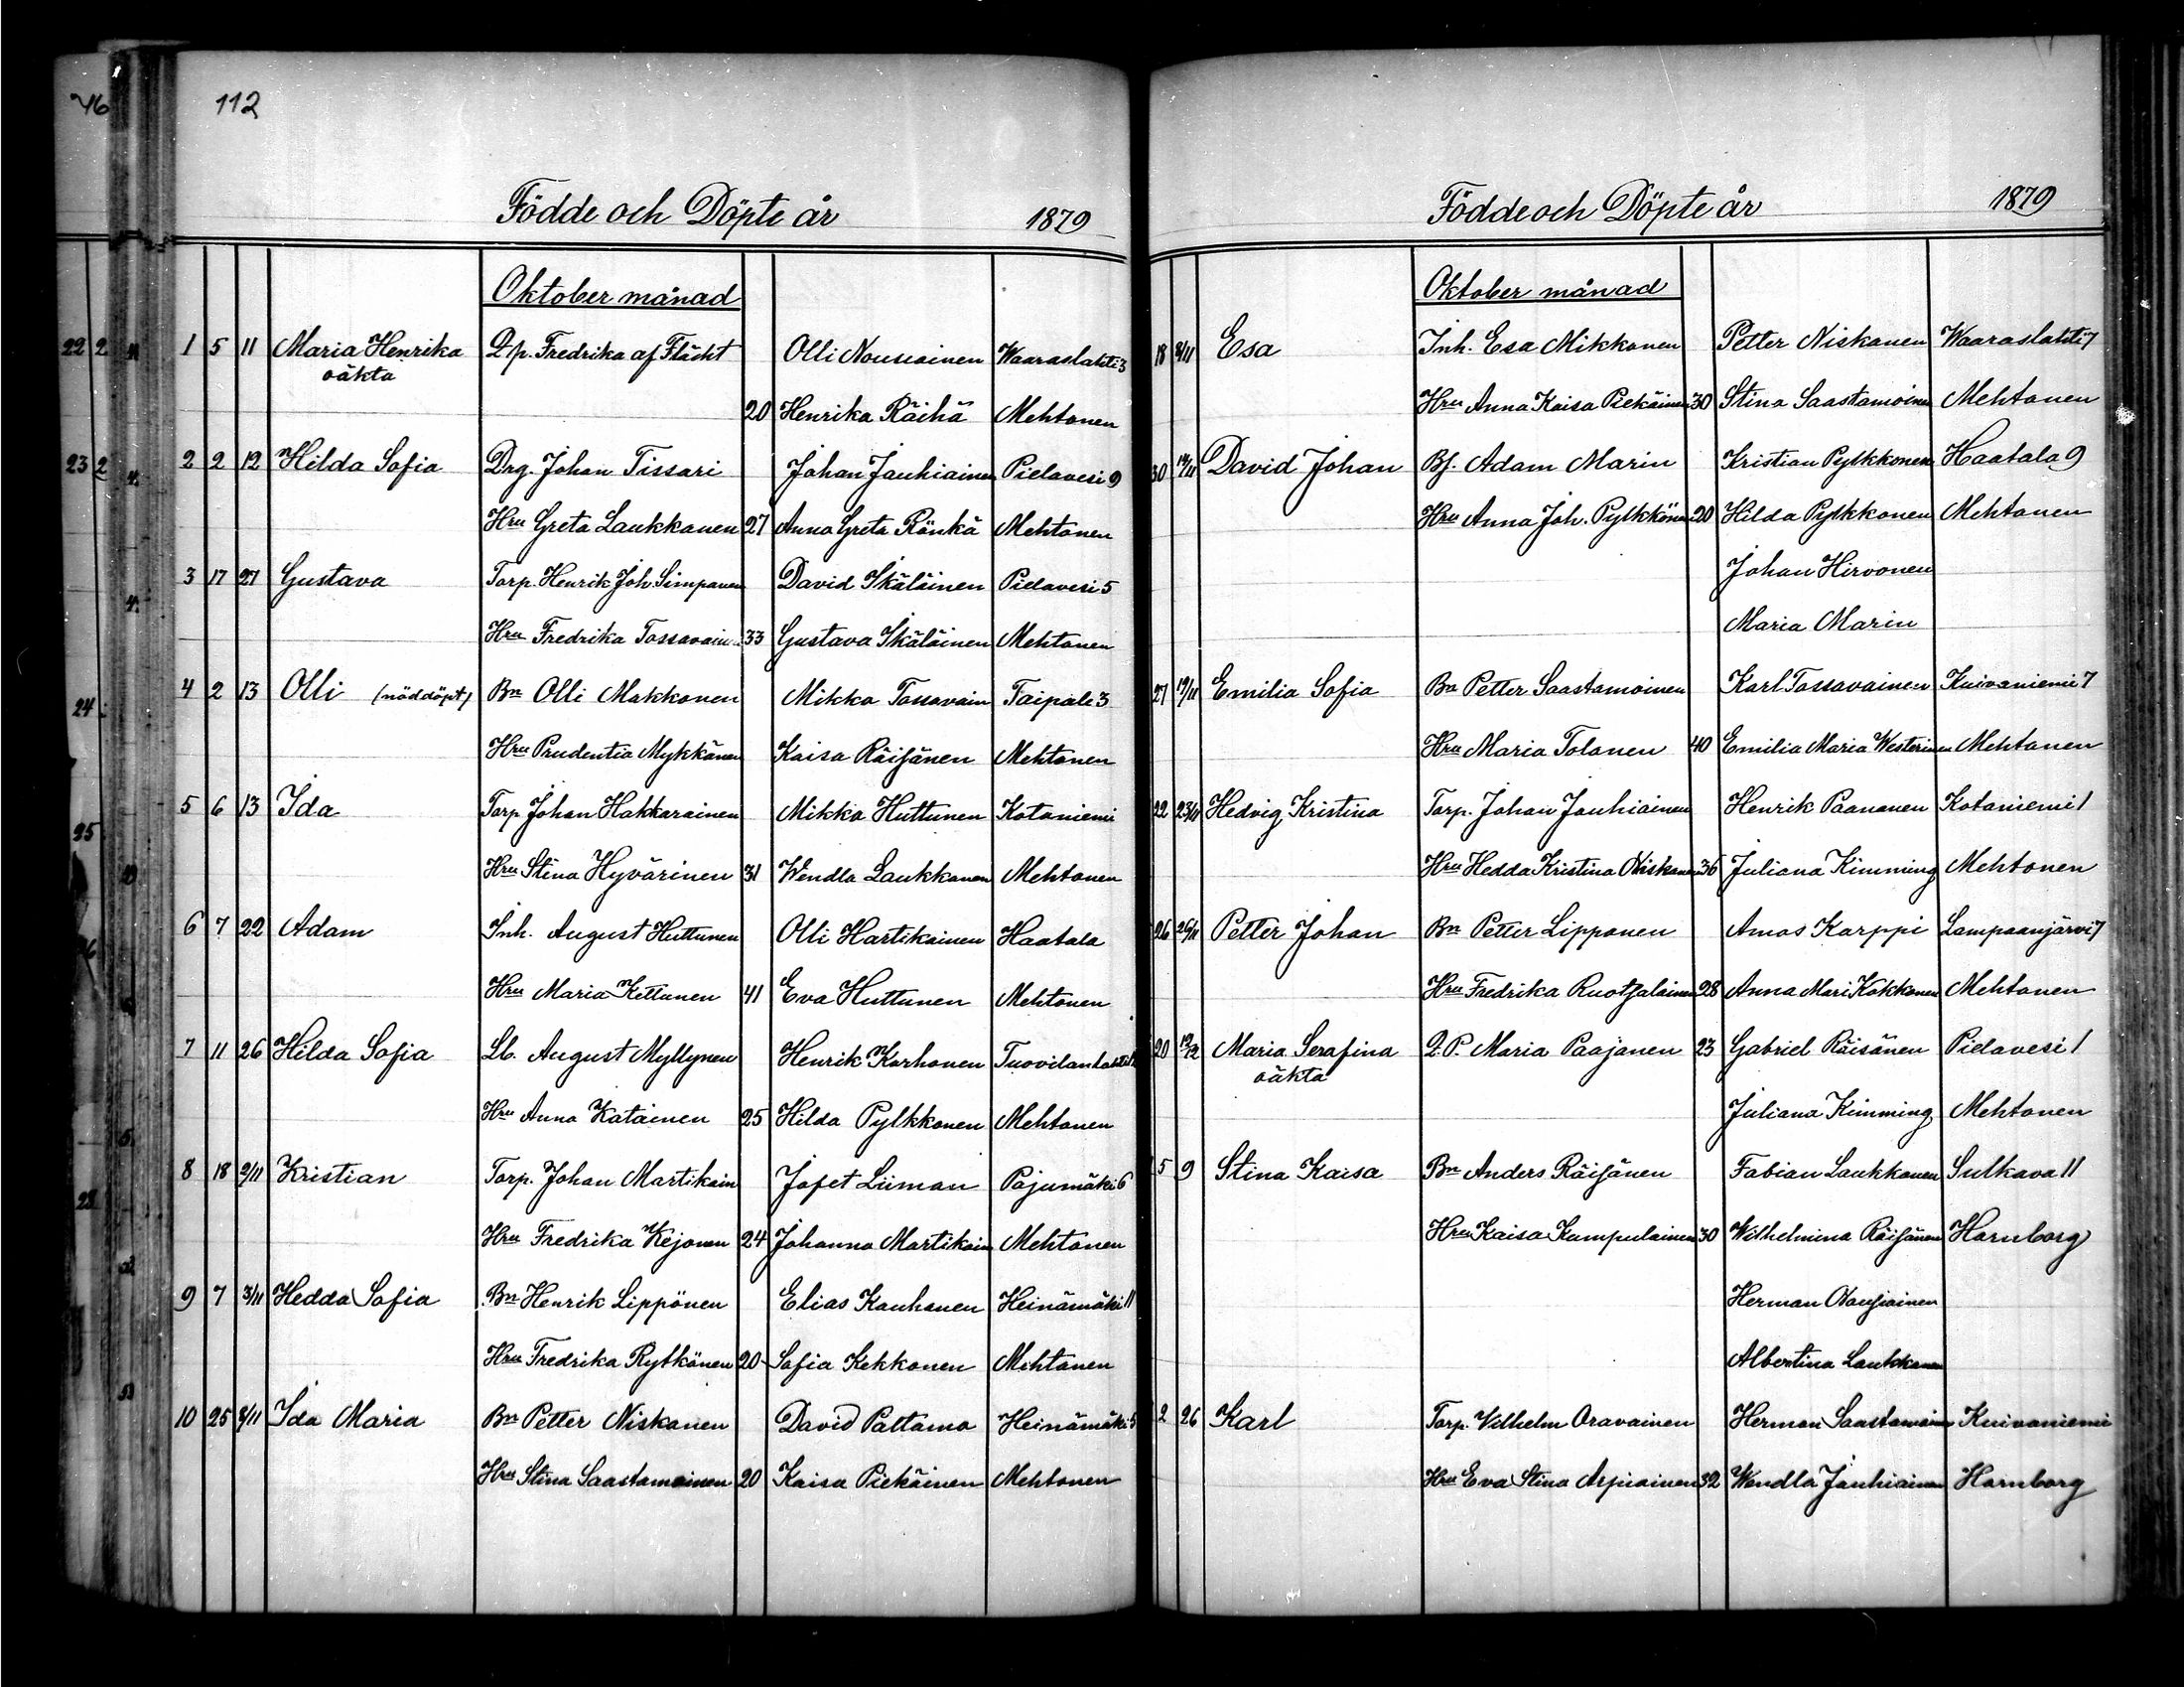 46
112
Födde och Döpte år 1879
Oktober månad
22 2
1 5 11 Maria Henrika Qp. Fredrika af Flächt Olli Nousiainen Waaraslahti 3
oäkta
20 Henrika Räihä Mehtonen
23 2
2 2 12 Hilda Sofia Drg. Johan Tissari Johan Jauhiainen Pielavesi 9
Hru Greta Laukkanen 27 Anna Greta Rönkä Mehtonen
3 17 27 Gustava Torp. Henrik Joh. Simpanen David Ikäläinen Pielavesi 5
Hru Fredrika Tossavain 33 Gustava Ikäläinen Mehtonen
24
4 2 13 Olli (nöddöpt) Bn Olli Makkonen Mikko Tossavain Taipale 3
Hru Prudentia Mykkänen Kaisa Räisänen Mehtonen
25
5 6 13 Ida Torp Johan Hakkarainen Mikko Huttunen Kotaniemi
Hru Stina Hyvärinen 31 Wendla Laukkanen Mehtonen
6 7 22 Adam Inh. August Huttunen Olli Hartikainen Haatala
Hru Maria Kettunen 41 Eva Huttunen Mehtonen
7 11 26 Hilda Sofia Lb. August Myllynen Henrik Korhonen Tuovilanlahti
Hru Anna Katainen 25 Hilda Pylkkonen Mehtonen
28
8 18 2/11 Kristian Torp. Johan Martikain Jafet Liiman Pajumäki 6
Hru Fredrika Kejonen 24 Johanna Martikain Mehtonen
9 7 3/11 Hedda Sofia Bn Henrik Lippönen Elias Kauhanen Heinämäki 11
Hru Fredrika Rytkönen 20 Sofia Kekkonen Mehtonen
10 25 8/11 Ida Maria Bn Petter Niskanen David Pattamo Heinämäki 5
Hru Stina Saastamoinen 20 Kaisa Piekäinen Mehtonen
Födde och Döpte år 1879
Oktober månad
18 8/11 Esa Inh. Esa Mikkonen Petter Niskanen Waaraslahti 7
Hru Anna Kaisa Piekäinen 30 Stina Saastamoinen Mehtonen
30 David Johan Bf. Adam Marin Kristian Pylkkonen Haatala 9
Hru Anna Joh. Pylkkönen 20 Hilda Pylkkonen Mehtonen
Johan Hirvonen
Maria Marin
27 19/11 Emilia Sofia Bn Petter Saastamoinen Karl Tossavainen Kuivaniemi 7
Hru Maria Tolonen 40 Emilia Maria Westerinen Mehtonen
22 23/11 Hedvig Kristina Torp. Johan Jauhiainen Henrik Paananen Kotaniemi 1
Hru Hedda Kristina Niskanen 36 Juliana Kimming Mehtonen
26 26/11 Petter Johan Bn Petter Lipponen Amos Karppi Lampaanjärvi 7
Hru Fredrika Ruotsalainen 28 Anna Mari Kokkonen Mehtonen
20 19/12 Maria Serafina Q.P. Maria Paajanen 23 Gabriel Räisänen Pielavesi 1
oäkta
Juliana Kimming Mehtonen
5 9 Stina Kaisa Bn Anders Räisänen Fabian Laukkanen Sulkava 11
Hru Kaisa Kumpulainen 30 Wilhelmina Räisänen Hornborg
Herman
Albertina Laukkanen
2 26 Karl Torp. Vilhelm Oravainen Herman Saastamoinen Kuivaniemi
Hru Eva Stina Arpiainen 32 Wendla Jauhiainen Hornborg